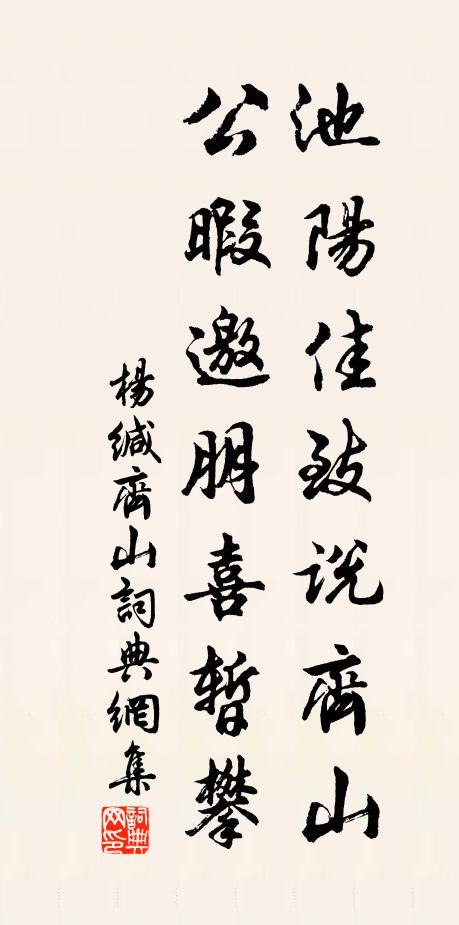 池陽佳致說齊山
公暇邀朋喜暫攀
楊緘齊山詞典網集
詞典網印